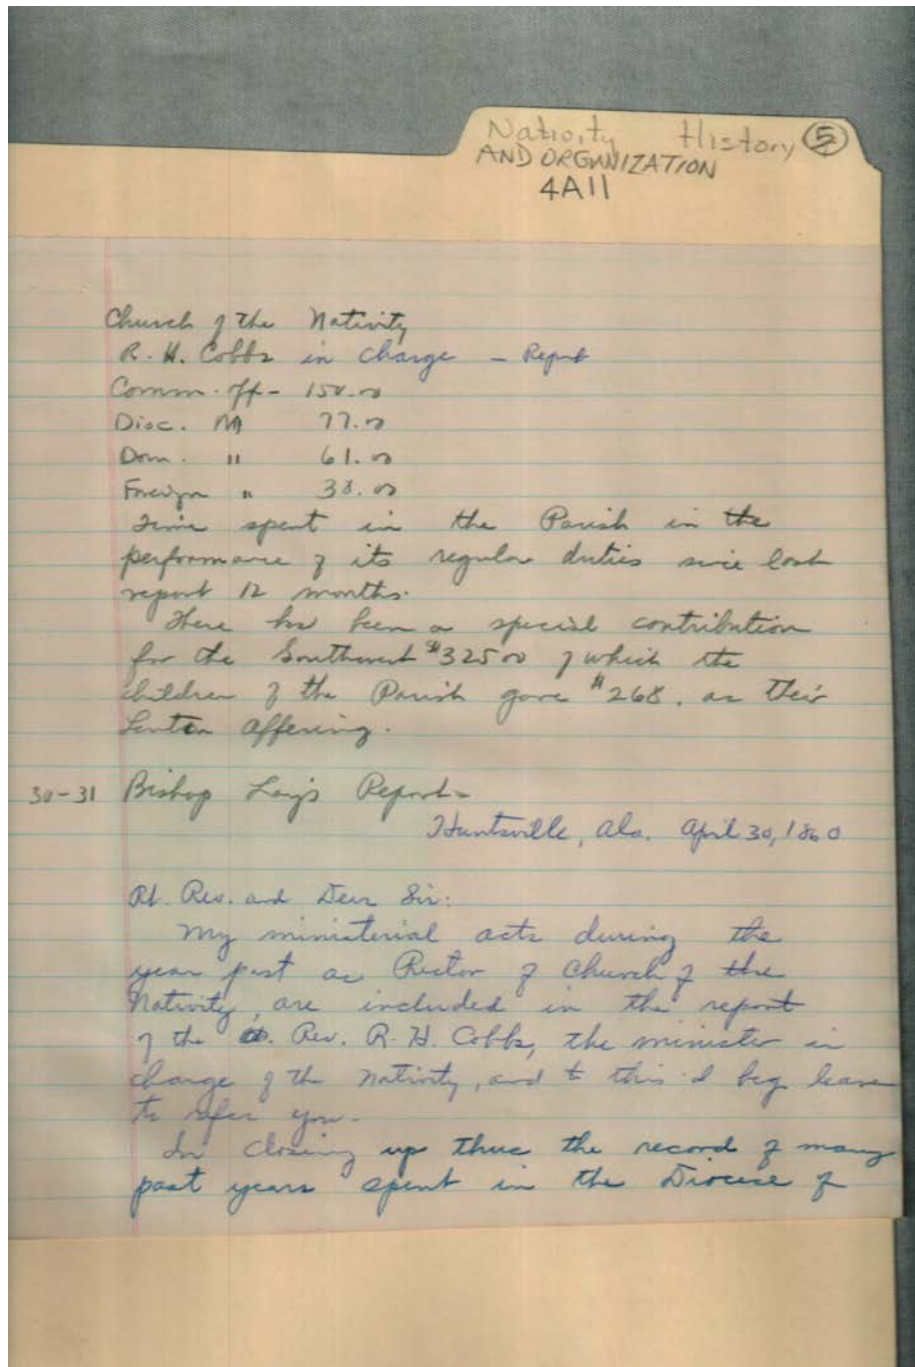 Nativity History 5
AND ORGANIZATION
4A11
Church of the Nativity
R. H. Cobbs in charge - Report
Comm. off - 150.00
Disc. M 77.00
Dom. " 61.00
Foreign " 38.00
Time spent in the Parish in the
performance of its regular duties since last
report 12 months.
There has been a special contribution
for the Southwest $325 00 of which the
children of the Parish gave $268. as their
Lenten offering.
30-31 Bishop Lay's Report -
Huntsville, Ala. April 30, 1860
Rt. Rev. and Dear Sir:
My ministerial acts during the
year past as Rector of Church of the
Nativity, are included in the report
of the Rev. R. H. Cobbs, the minister in
charge of the Nativity, and to this I beg leave
to refer you.
In closing up thus the record of many
past years spent in the Diocese of